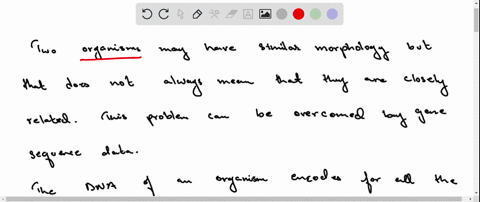 Two organisms may have similar morphology but
that does not always mean that they are closely
related. This problem can be overcomed by gene
sequence data.
The DNA of an organism encodes for all the